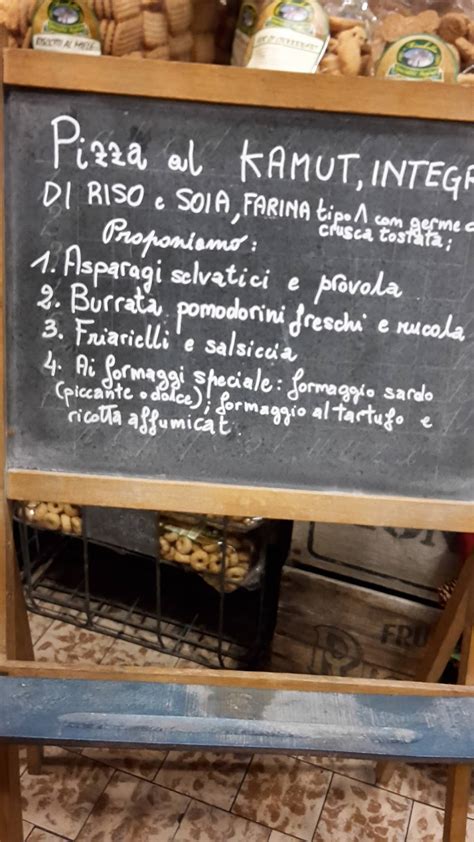 Pizza al KAMUT, INTEGR
DI RISO e SOIA, FARINA tipo 1 con germe
crusca tostata;
Proponiamo:
1. Asparagi selvatici e provola
2. Burrata, pomodorini freschi e rucola
3. Friarielli e salsiccia
4. Ai formaggi speciale: formaggio sardo
(piccante o dolce); formaggio al tartufo e
ricotta affumicat.
FRU